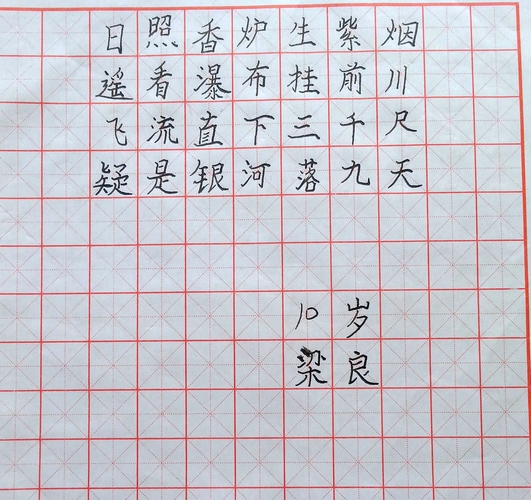 日照香炉生紫烟
遥看瀑布挂前川
飞流直下三千尺
疑是银河落九天
10岁
梁良